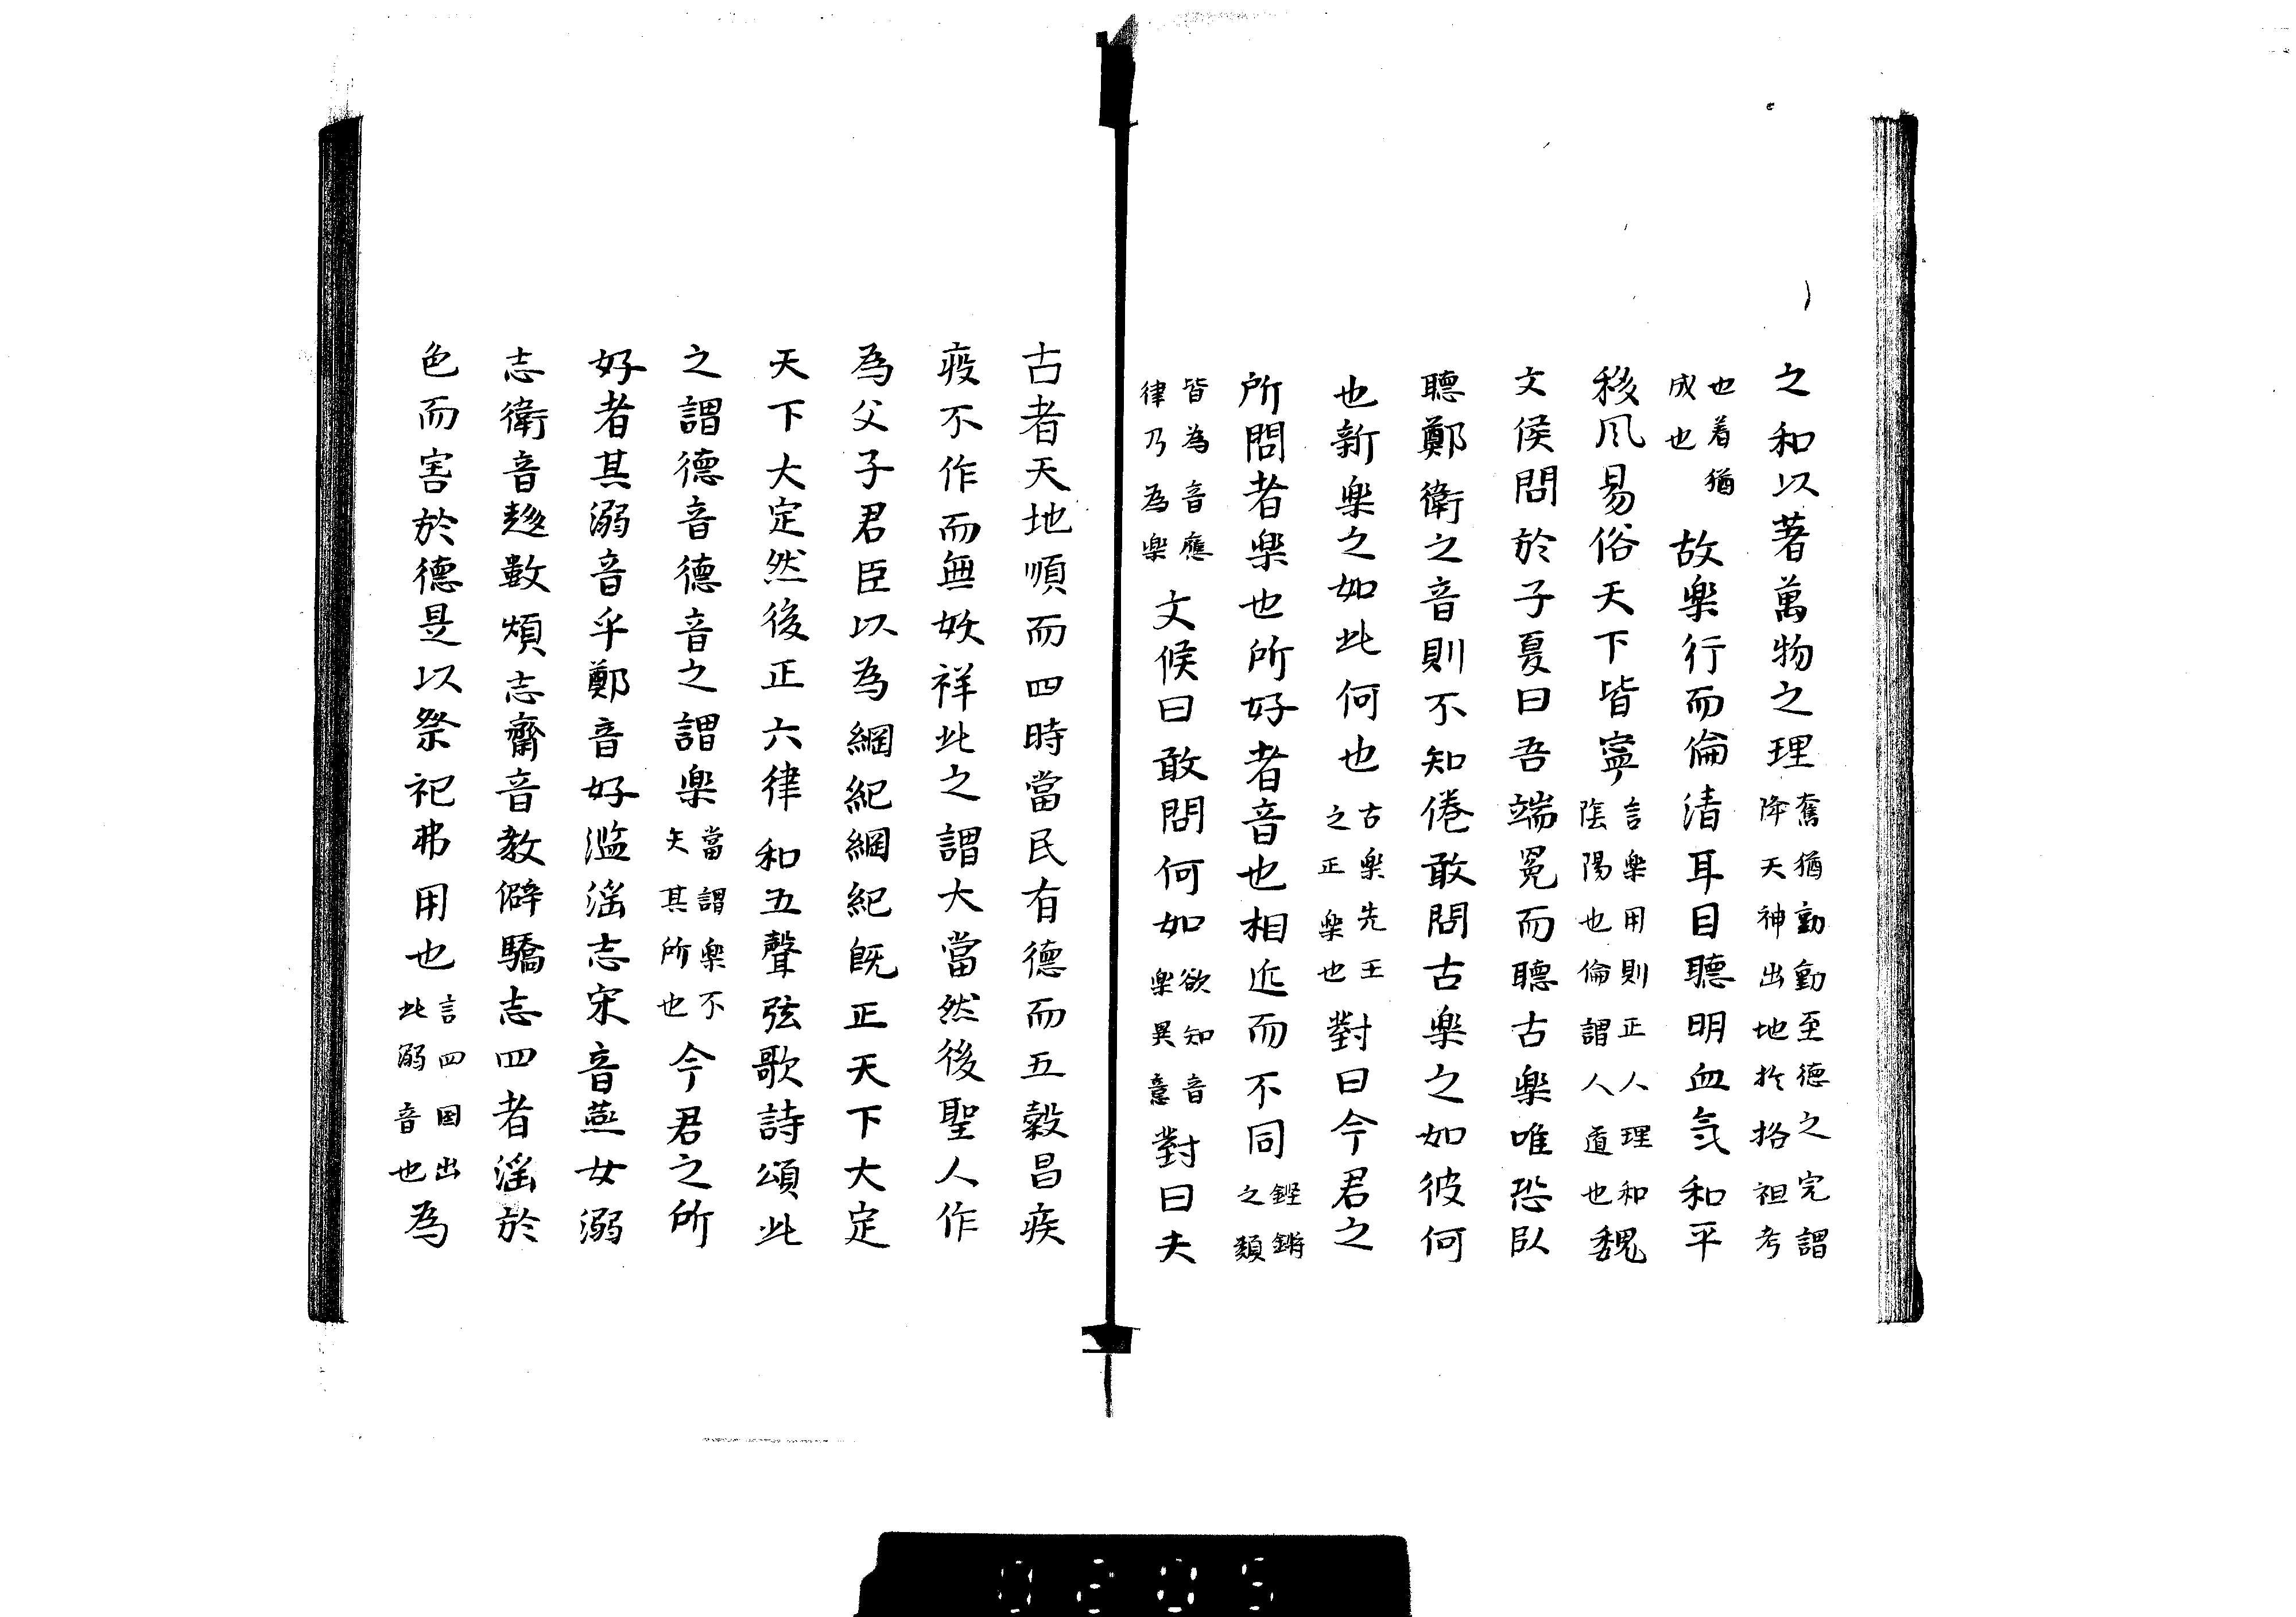 之和以著萬物之理奮猶動動至德之完謂降天神出地於挌祖考
也着猶成也故楽行而倫清耳目聴明血氣和平
移風易俗天下皆寧言楽用則正人理和陰陽也倫謂人道也魏
文侯問於子夏曰吾端冕而聴古楽唯恐臥
聴鄭衛之音則不知倦敢問古楽之如彼何
也新楽之如此何也古楽先王之正楽也對曰今君之
所問者楽也所好者音也相近而不同鏗鏘之類
皆為音應律乃為楽文候曰敢問何如欲知音楽異意對曰夫
古者天地順而四時當民有德而五穀昌疾
疫不作而無妖祥此之謂大當然後聖人作
為父子君臣以為綱紀綱紀既正天下大定
天下大定然後正六律和五聲弦歌詩頌此
之謂德音德音之謂楽當謂楽不失其所也今君之所
好者其溺音乎鄭音好濫滛志宋音燕女溺
志衛音趍數煩志齋音敖僻驕志四者滛於
色而害於德是以祭祀弗用也言四国出此溺音也為
0205